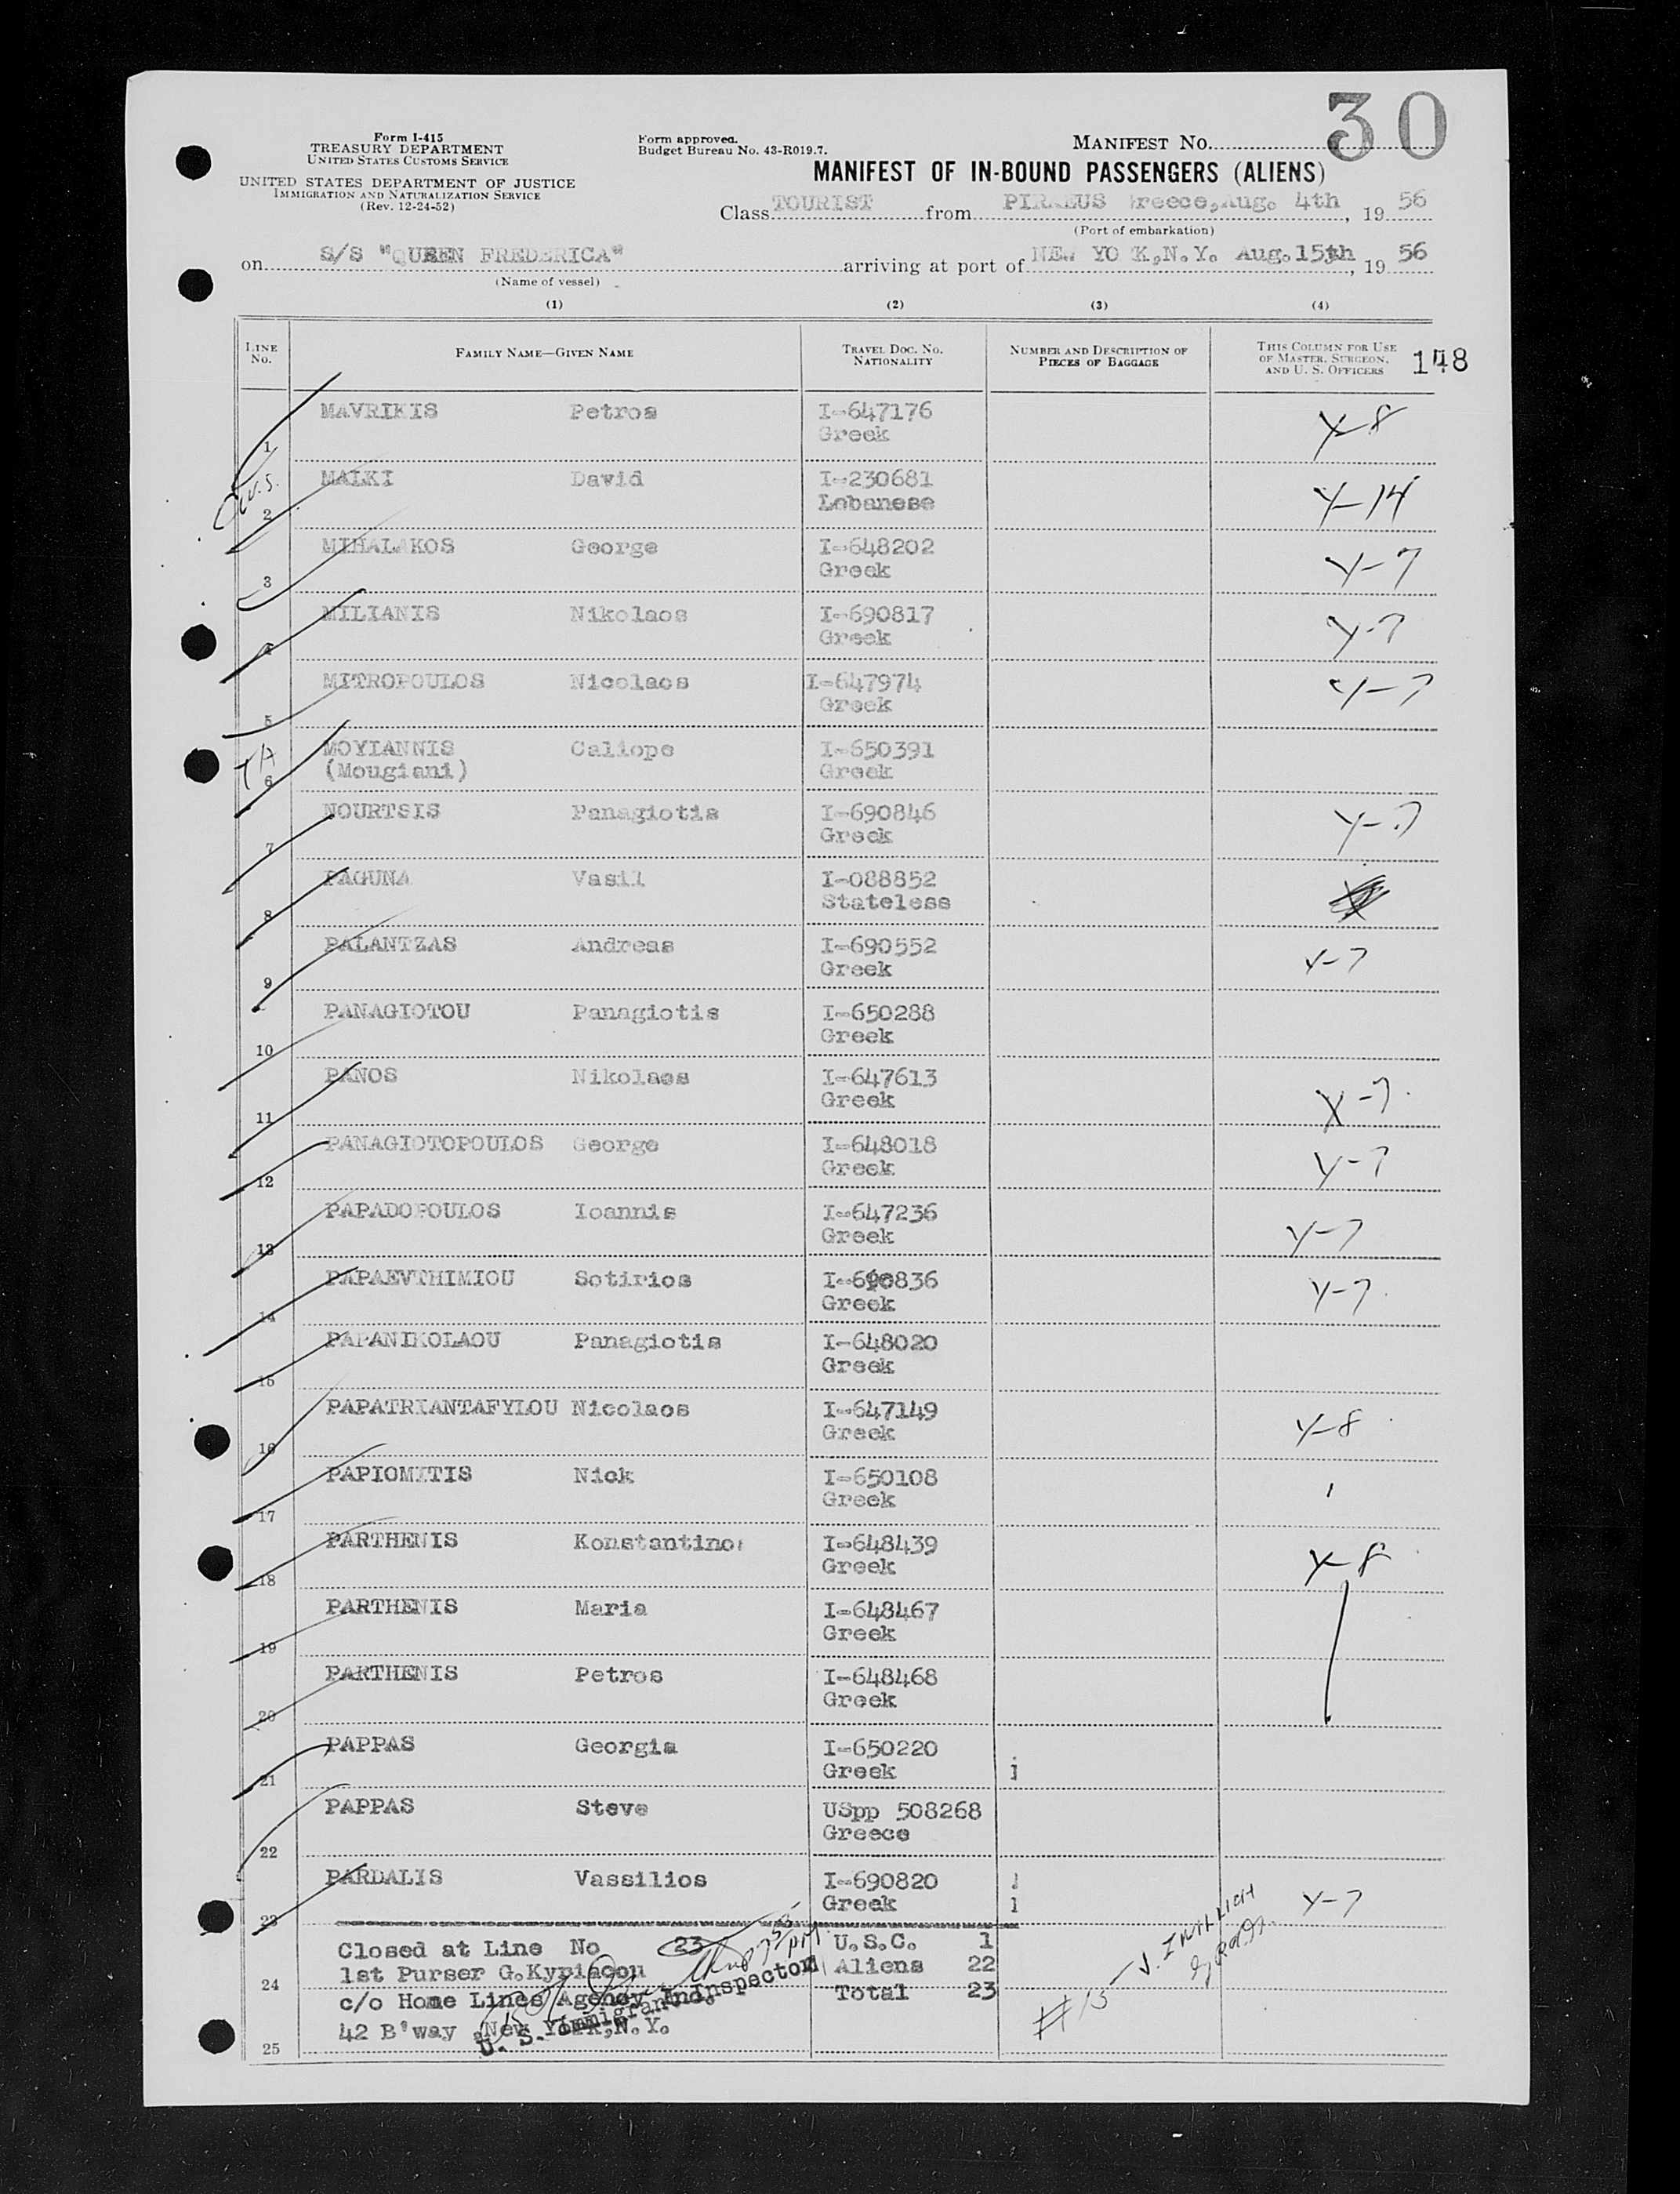 30
Form I-415
TREASURY DEPARTMENT
UNITED STATES CUSTOMS SERVICE
UNITED STATES DEPARTMENT OF JUSTICE
IMMIGRATION AND NATURALIZATION SERVICE
(Rev. 12-24-52)
Form approved.
Budget Bureau No. 43-R019.7.
MANIFEST No.
MANIFEST OF IN-BOUND PASSENGERS (ALIENS)
Class TOURIST from PIRAEUS Greece, Aug. 4th, 19 56
(Port of embarkation)
on S/S "QUEEN FREDERICA" arriving at port of NEW YO K, N.Y. Aug. 15th, 19 56
(Name of vessel)
(1) (2) (3) (4)
LINE No. FAMILY NAME—GIVEN NAME TRAVEL DOC. No. NATIONALITY NUMBER AND DESCRIPTION OF PIECES OF BAGGAGE THIS COLUMN FOR USE OF MASTER, SURGEON, AND U. S. OFFICERS 148
1 MAVRIKIS Petros I-647176 Y-8
Greek
2 MALKI David I-230681 Y-14
Lebanese
3 MIHALAKOS George I-648202 Y-7
Greek
4 MILIANIS Nikolaos I-690817 Y-7
Greek
5 MITROPOULOS Nicolaos I-647974 Y-7
Greek
6 MOYIANNIS Caliope I-650391
(Mougiani) Greek
7 NOURTSIS Panagiotis I-690846 Y-7
Greek
8 PAGUNA Vasil I-088852
Stateless
9 PALANTZAS Andreas I-690552 Y-7
Greek
10 PANAGIOTOU Panagiotis I-650288
Greek
11 PANOS Nikolaos I-647613 Y-7
Greek
12 PANAGIOTOPOULOS George I-648018 Y-7
Greek
13 PAPADOPOULOS Ioannis I-647236 Y-7
Greek
14 PAPAEVTHIMIOU Sotirios I-690836 Y-7
Greek
15 PAPANIKOLAOU Panagiotis I-648020
Greek
16 PAPATRIANTAFYLOU Nicolaos I-647149 Y-8
Greek
17 PAPIOMITIS Nick I-650108
Greek
18 PARTHENIS Konstantinos I-648439 Y-8
Greek
19 PARTHENIS Maria I-648467
Greek
20 PARTHENIS Petros I-648468
Greek
21 PAPPAS Georgia I-650220
Greek 1
22 PAPPAS Steve USpp 508268
Greece
23 PARDALIS Vassilios I-690820 1 Y-7
Greek 1
Closed at Line No 23 U.S.C. 1
24 1st Purser G.Kypiacou Aliens 22
c/o Home Lines Agency Inc. Total 23
42 B'way New York, N.Y.
U. S. Immigrant Inspector
#13
25